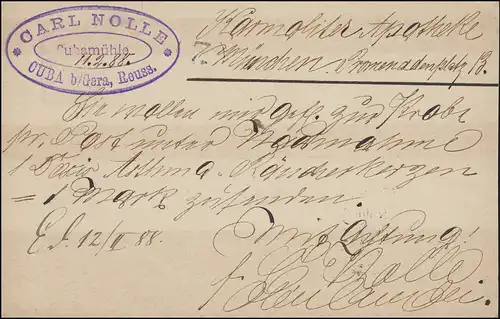 CARL NOLLE
Cubamühle
11.2.88.
CUBA b/Gera, Reuss.
Karmeliter Apotheke
München Promenadenplatz 13.
Sie wollen mir gefl. zur Probe
pr. Post unter Nachnahme
1 Asthma Räucherkerzen
= 1 Mark zusenden.
12/II 88.
Mit Achtung!
C. Nolle